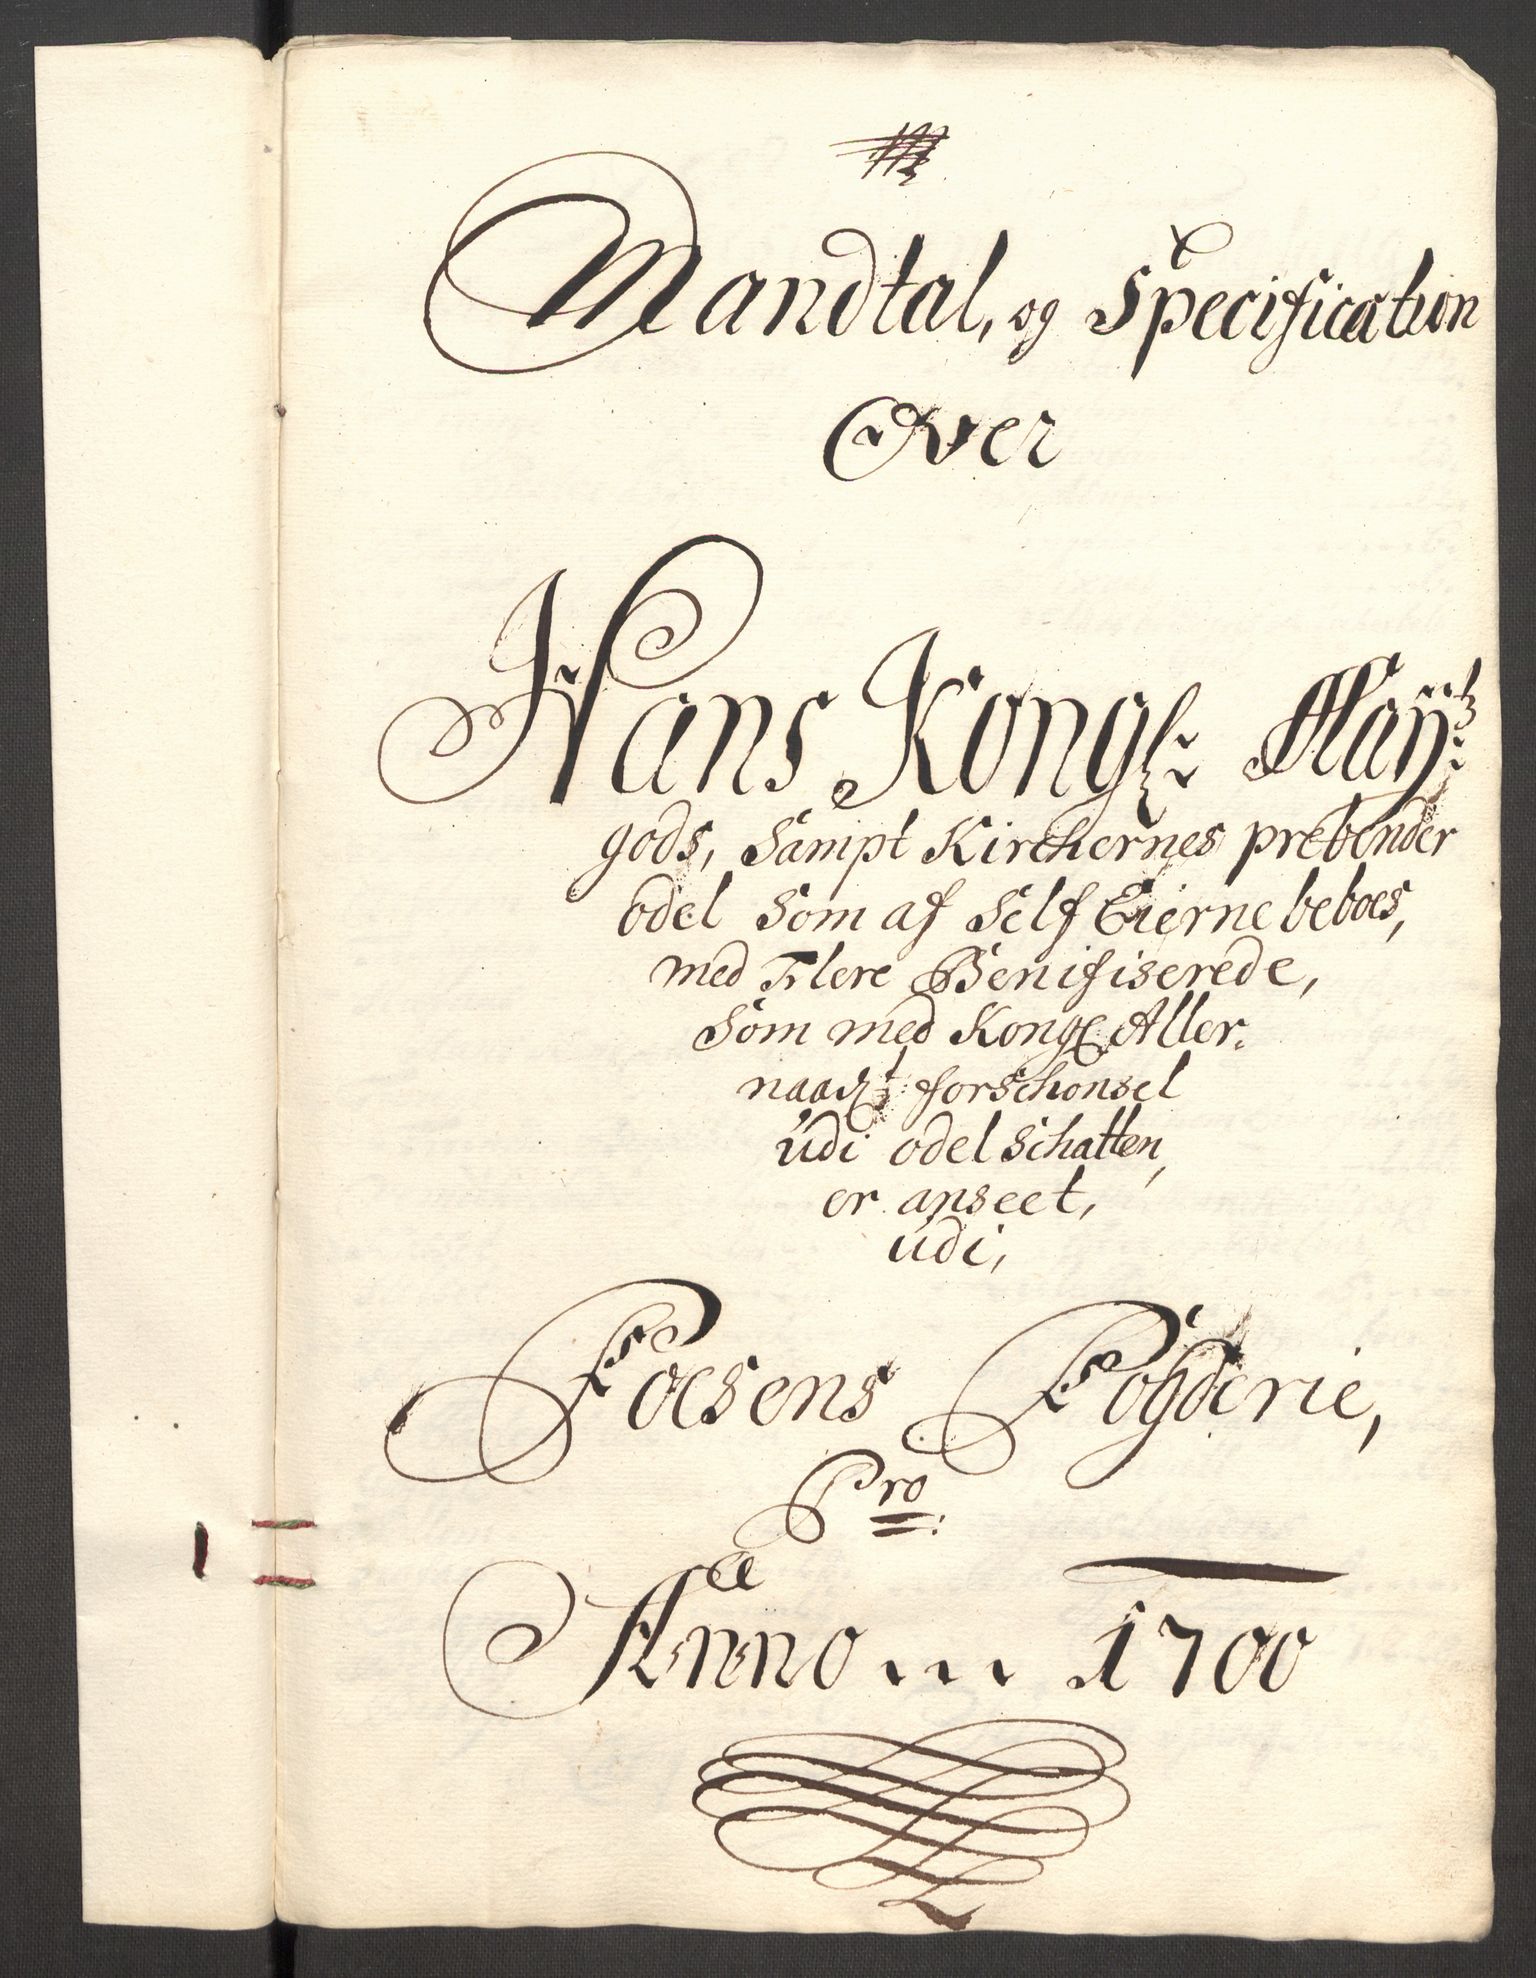 Mandtal, og Specification
Over
Hans Kongl: Maÿtz:
gods, Sampt Kirchernes prebender
odel Som af Self Eierne beboes,
med Flere Benifiserede,
Som med Kongl Aller:
naadt forschonsel
udi odel Schatten,
er anseet,
udi,
Foesens Fogderie,
Pro:
Anno ... 1700